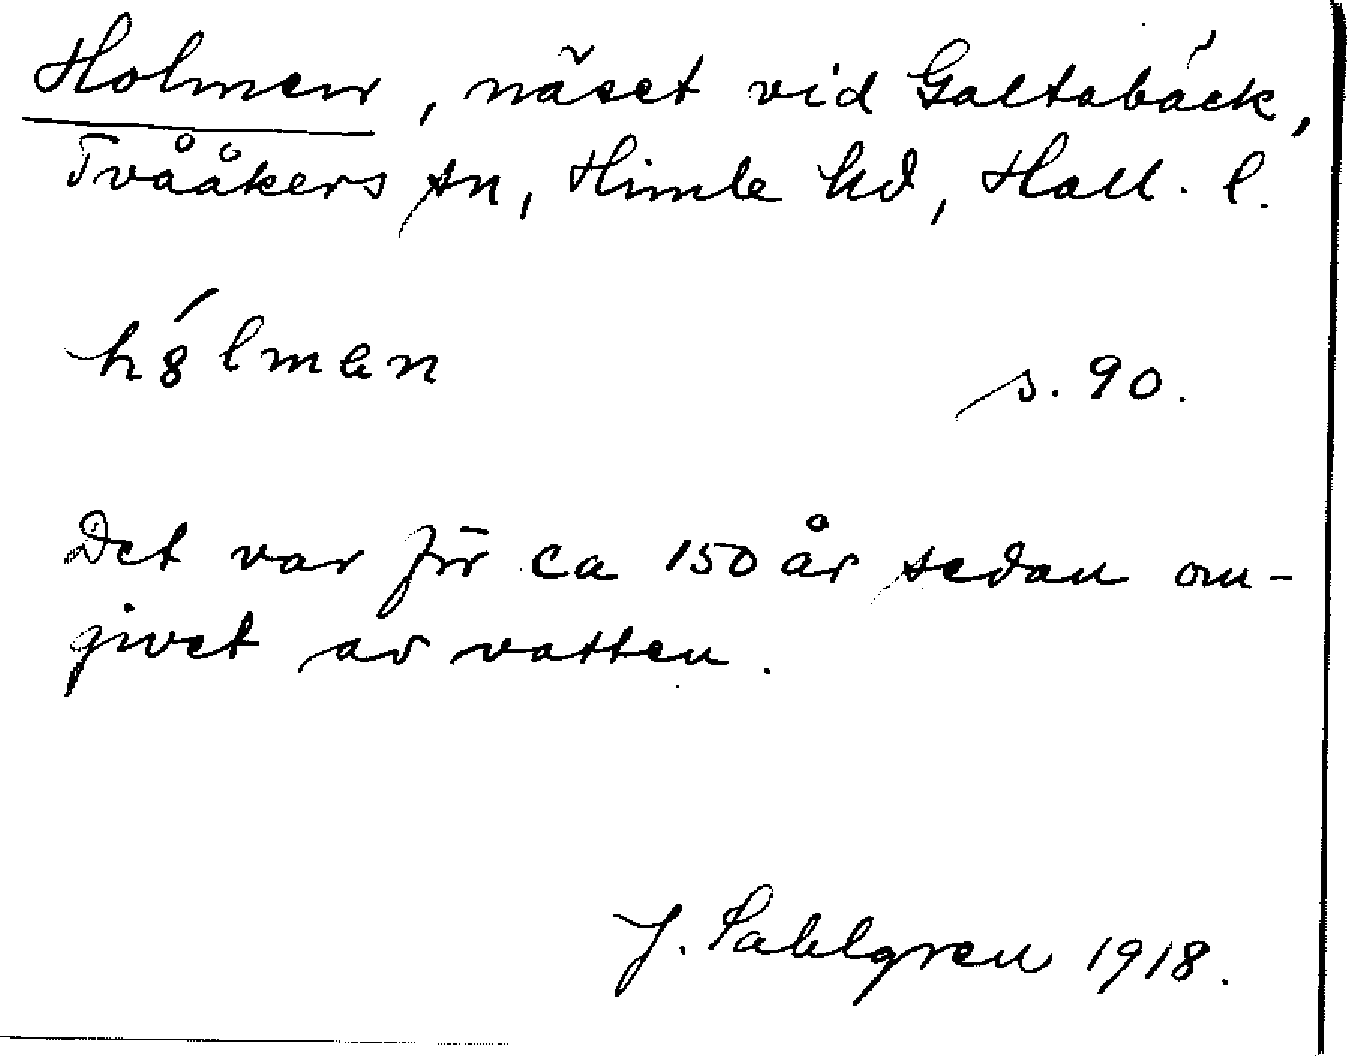 Holmen, näset vid Galtabäck,
Tvååkers sn, Himle hd, Hall. l.
hó̤lmen s. 90.
Det var för ca 150 år sedan om-
givet av vatten.
J. Sahlgren 1918.